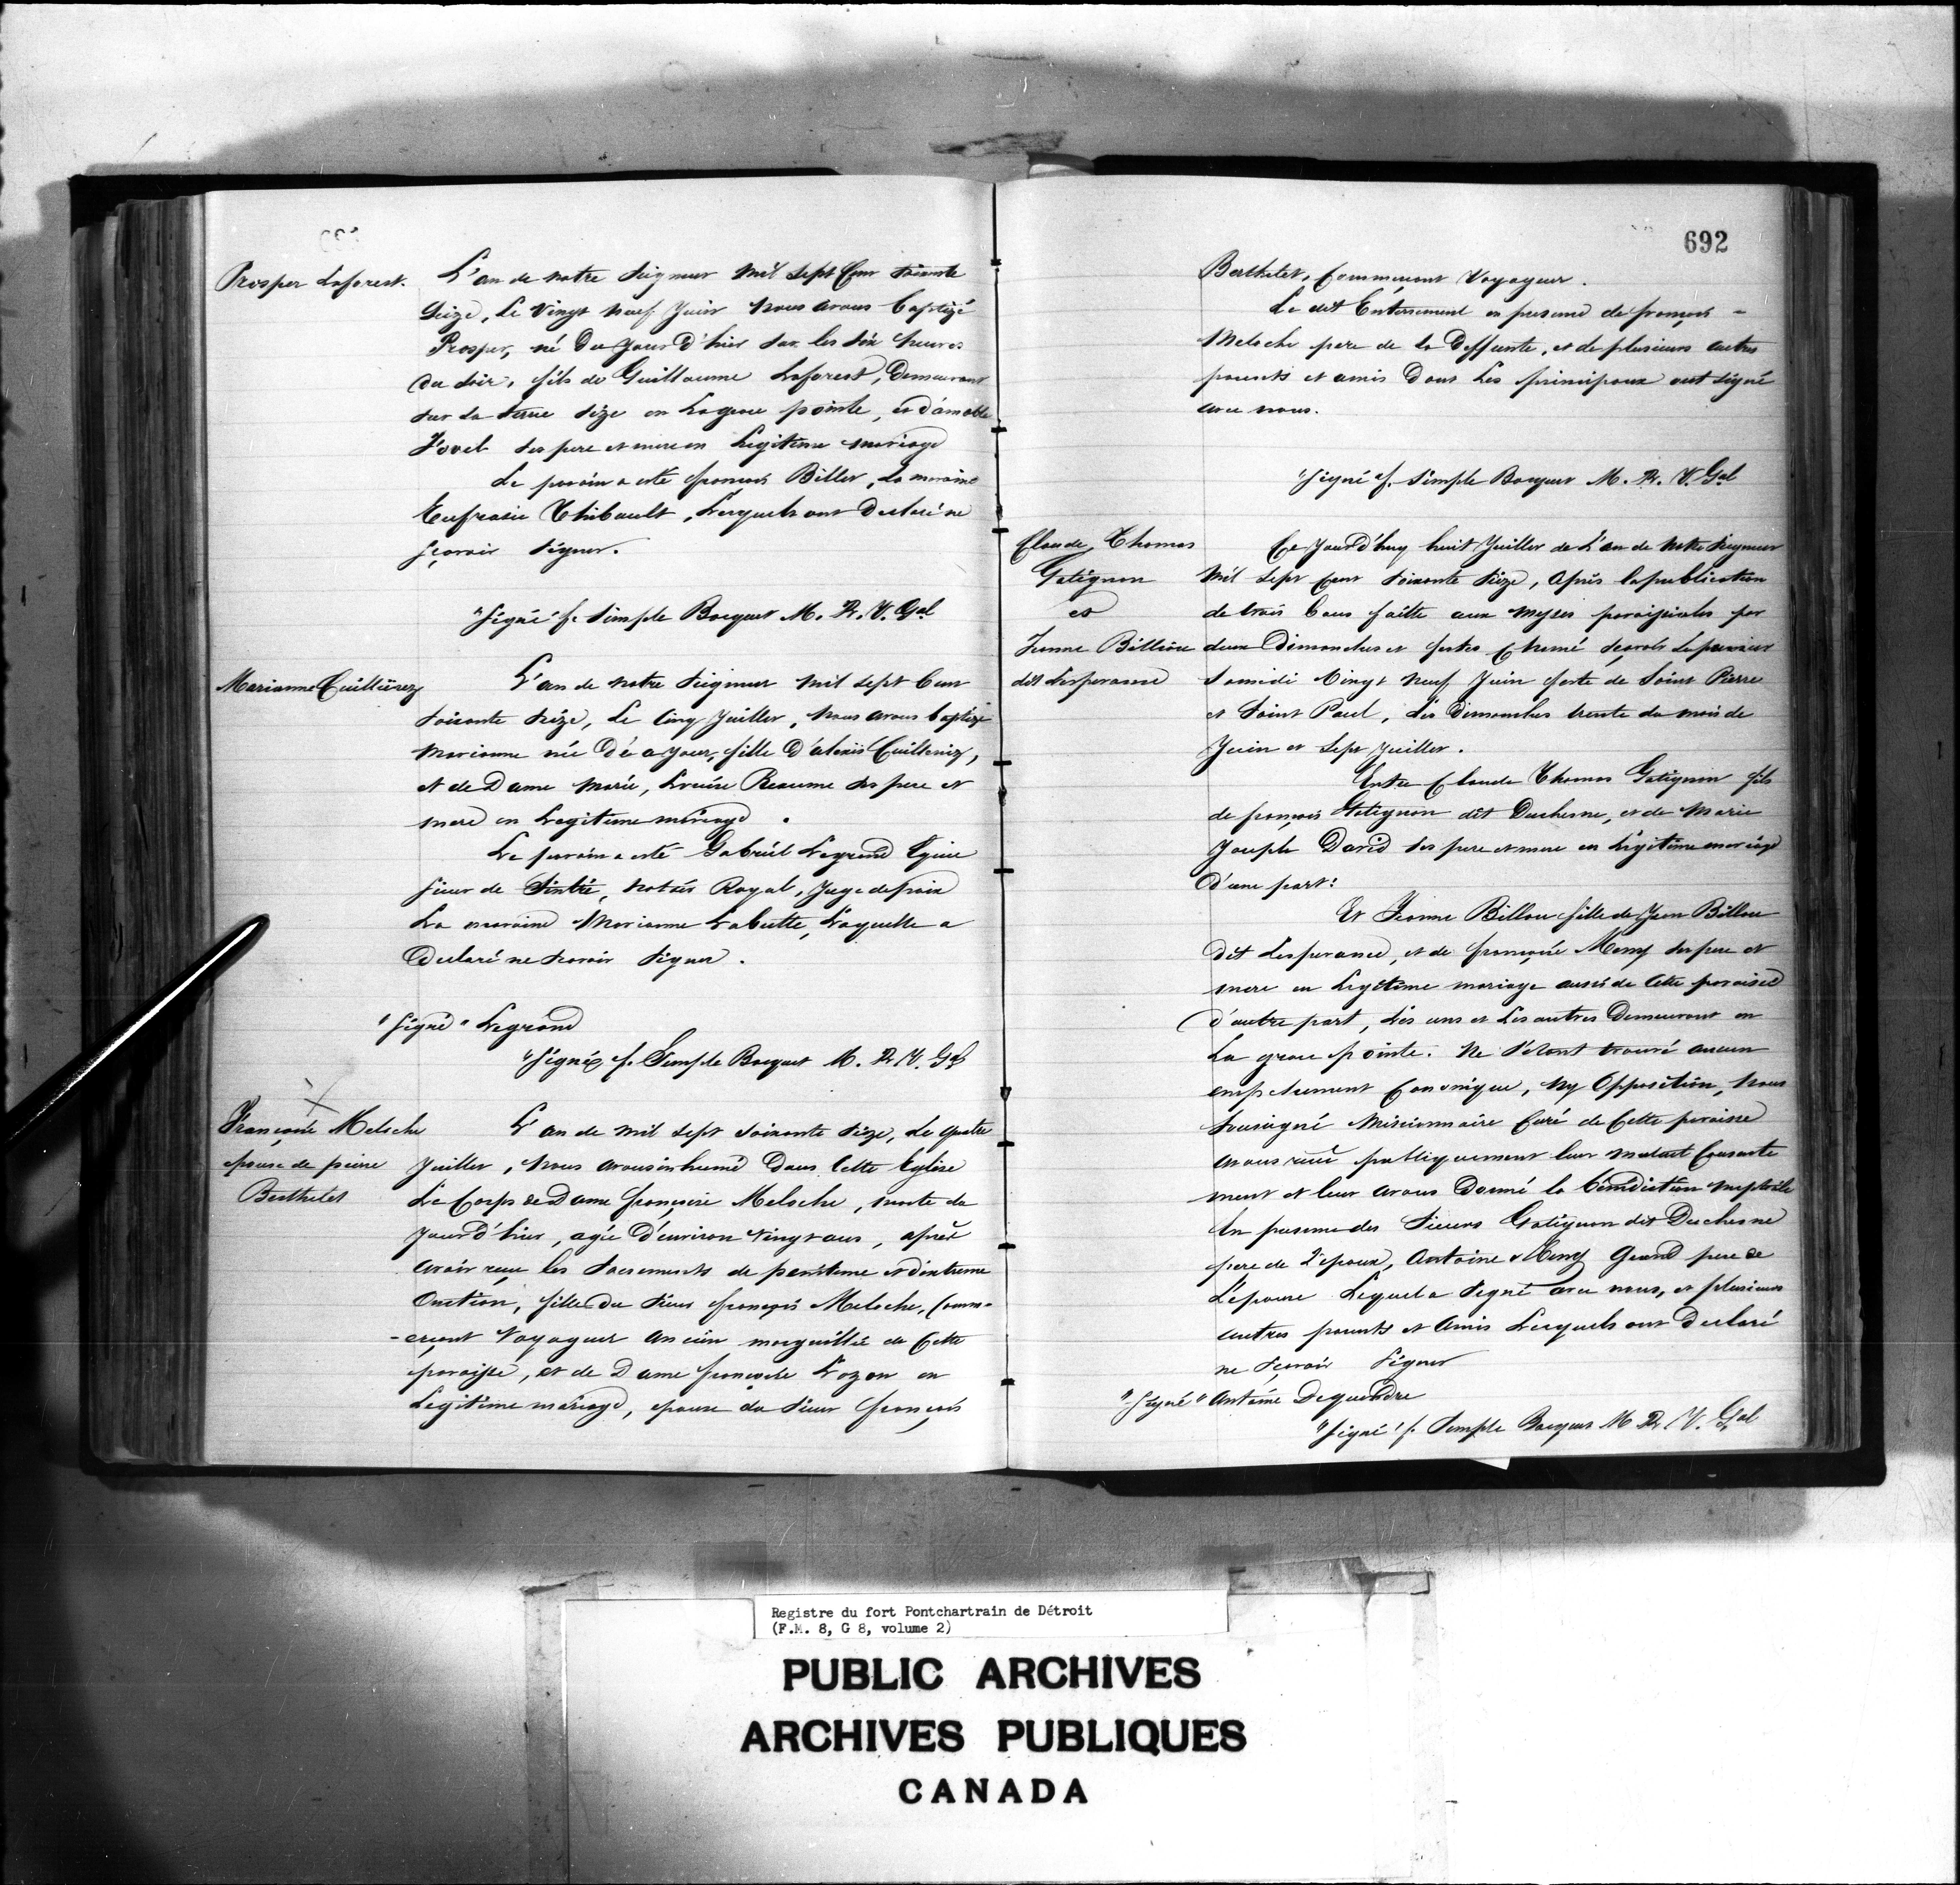 Prosper Laforest.
L'an de notre Seigneur mil sept Cent soixante
Seize, Le Vingt neuf Juin nous avons baptizé
Prosper, né Du Jour D'hier sur les six heures
du soir, fils de Guillaume Laforest, Demeurant
sur la terre size en La grose pointe, et d'amable
Yvel ses pere et mere en Legitime mariage
Le parain a esté françois Billet, La maraine
Eufrasie Thibault, Lesquels ont Declaré ne
sçavoir signer.
"signé" f. Simple Bocquet M. R. V. Gal
Marianne Cuillierez
L'an de notre Seigneur mil sept Cent
soixante seize, Le Cinq Juillet, nous avons baptizé
Marianne née De ce jour, fille D'alexis Cuillerier,
et de Dame Marie, Louise Reaume ses pere et
mere en Legitime mariage.
Le parain a esté Gabriel Legrand Ecuier
sieur de Sintré, notaire Royal, Juge de paix
La maraine Marianne Labutte, Laquelle a
Declaré ne savoir signer.
"signé" Legrand
"signé" f. Simple Bocquet M. R. V. Gal
Françoise Meloche
epouse de pierre
Berthelet
L'an de mil sept soixante seize, Le quatre
Juillet, nous avons inhumé Dans Cette Eglise
Le Corps de Dame françoise Meloche, morte du
Jour d'hier, agée D'environ vingt ans, après
avoir reçu les Sacrements de penitence et d'extreme
Onction, fille du Sieur françois Meloche, Comm-
-erçant Voyageur ancien marguillié de Cette
paroisse, et de Dame françoise Lozon en
Legitime mariage, epouse du Sieur françois
692
Berthelet, Commerçant Voyageur.
Le dit Enterrement en presence de françois -
Meloche pere de la Deffunte, et de plusieurs autres
parents et amis Dont Les principaux ont signé
avec nous.
"signé" f. Simple Bocquet M. R. V. Gal
Claude, Thomas
Gatignon
et
Jeanne Billiou
dit Lesperance
Ce Jourd'huy huit Juillet de L'an de Notre Seigneur
Mil sept Cent soixante seize, après la publication
de trois bans faitte aux Messes paroissiales par
deux Dimanches et festes Chomé sçavoir Le premier
samedi Vingt neuf Juin feste de Saint Pierre
et Saint Paul, Les Dimanches trente du mois de
Juin et sept Juillet.
Entre Claude Thomas Gatignon fils
de françois Gatignon dit Duchesne, et de Marie
Joseph David ses pere et mere en Légitime mariage
D'une part:
Et Jeanne Billou fille de Jean Billou
dit Lesperance, et de françoise Meny ses pere et
mere en Legitime mariage aussi de Cette paroisse
d'autre part, Les uns et Les autres Demeurant en
La grose pointe. Ne s'étant trouvé aucun
empechement Canonique, ny Opposition, nous
soussigné Missionnaire Curé de Cette paroisse
avons reçu publiquement leur mutuel Consente
ment et leur avons Donné la bénédiction nuptiale
En presence des Sieurs Gatignon dit Duchesne
pere de L'époux, Antoine Meny Grand pere de
L'épouse Lequel a signé avec nous, et plusieurs
autres parents et Amis Lesquels ont Declaré
ne sçavoir signer
"signé" Antoine Dequindre
"signé" f. Simple Bocquet M R. V. Gal
Registre du fort Pontchartrain de Détroit
(F.M. 8, G 8, volume 2)
PUBLIC ARCHIVES
ARCHIVES PUBLIQUES
CANADA